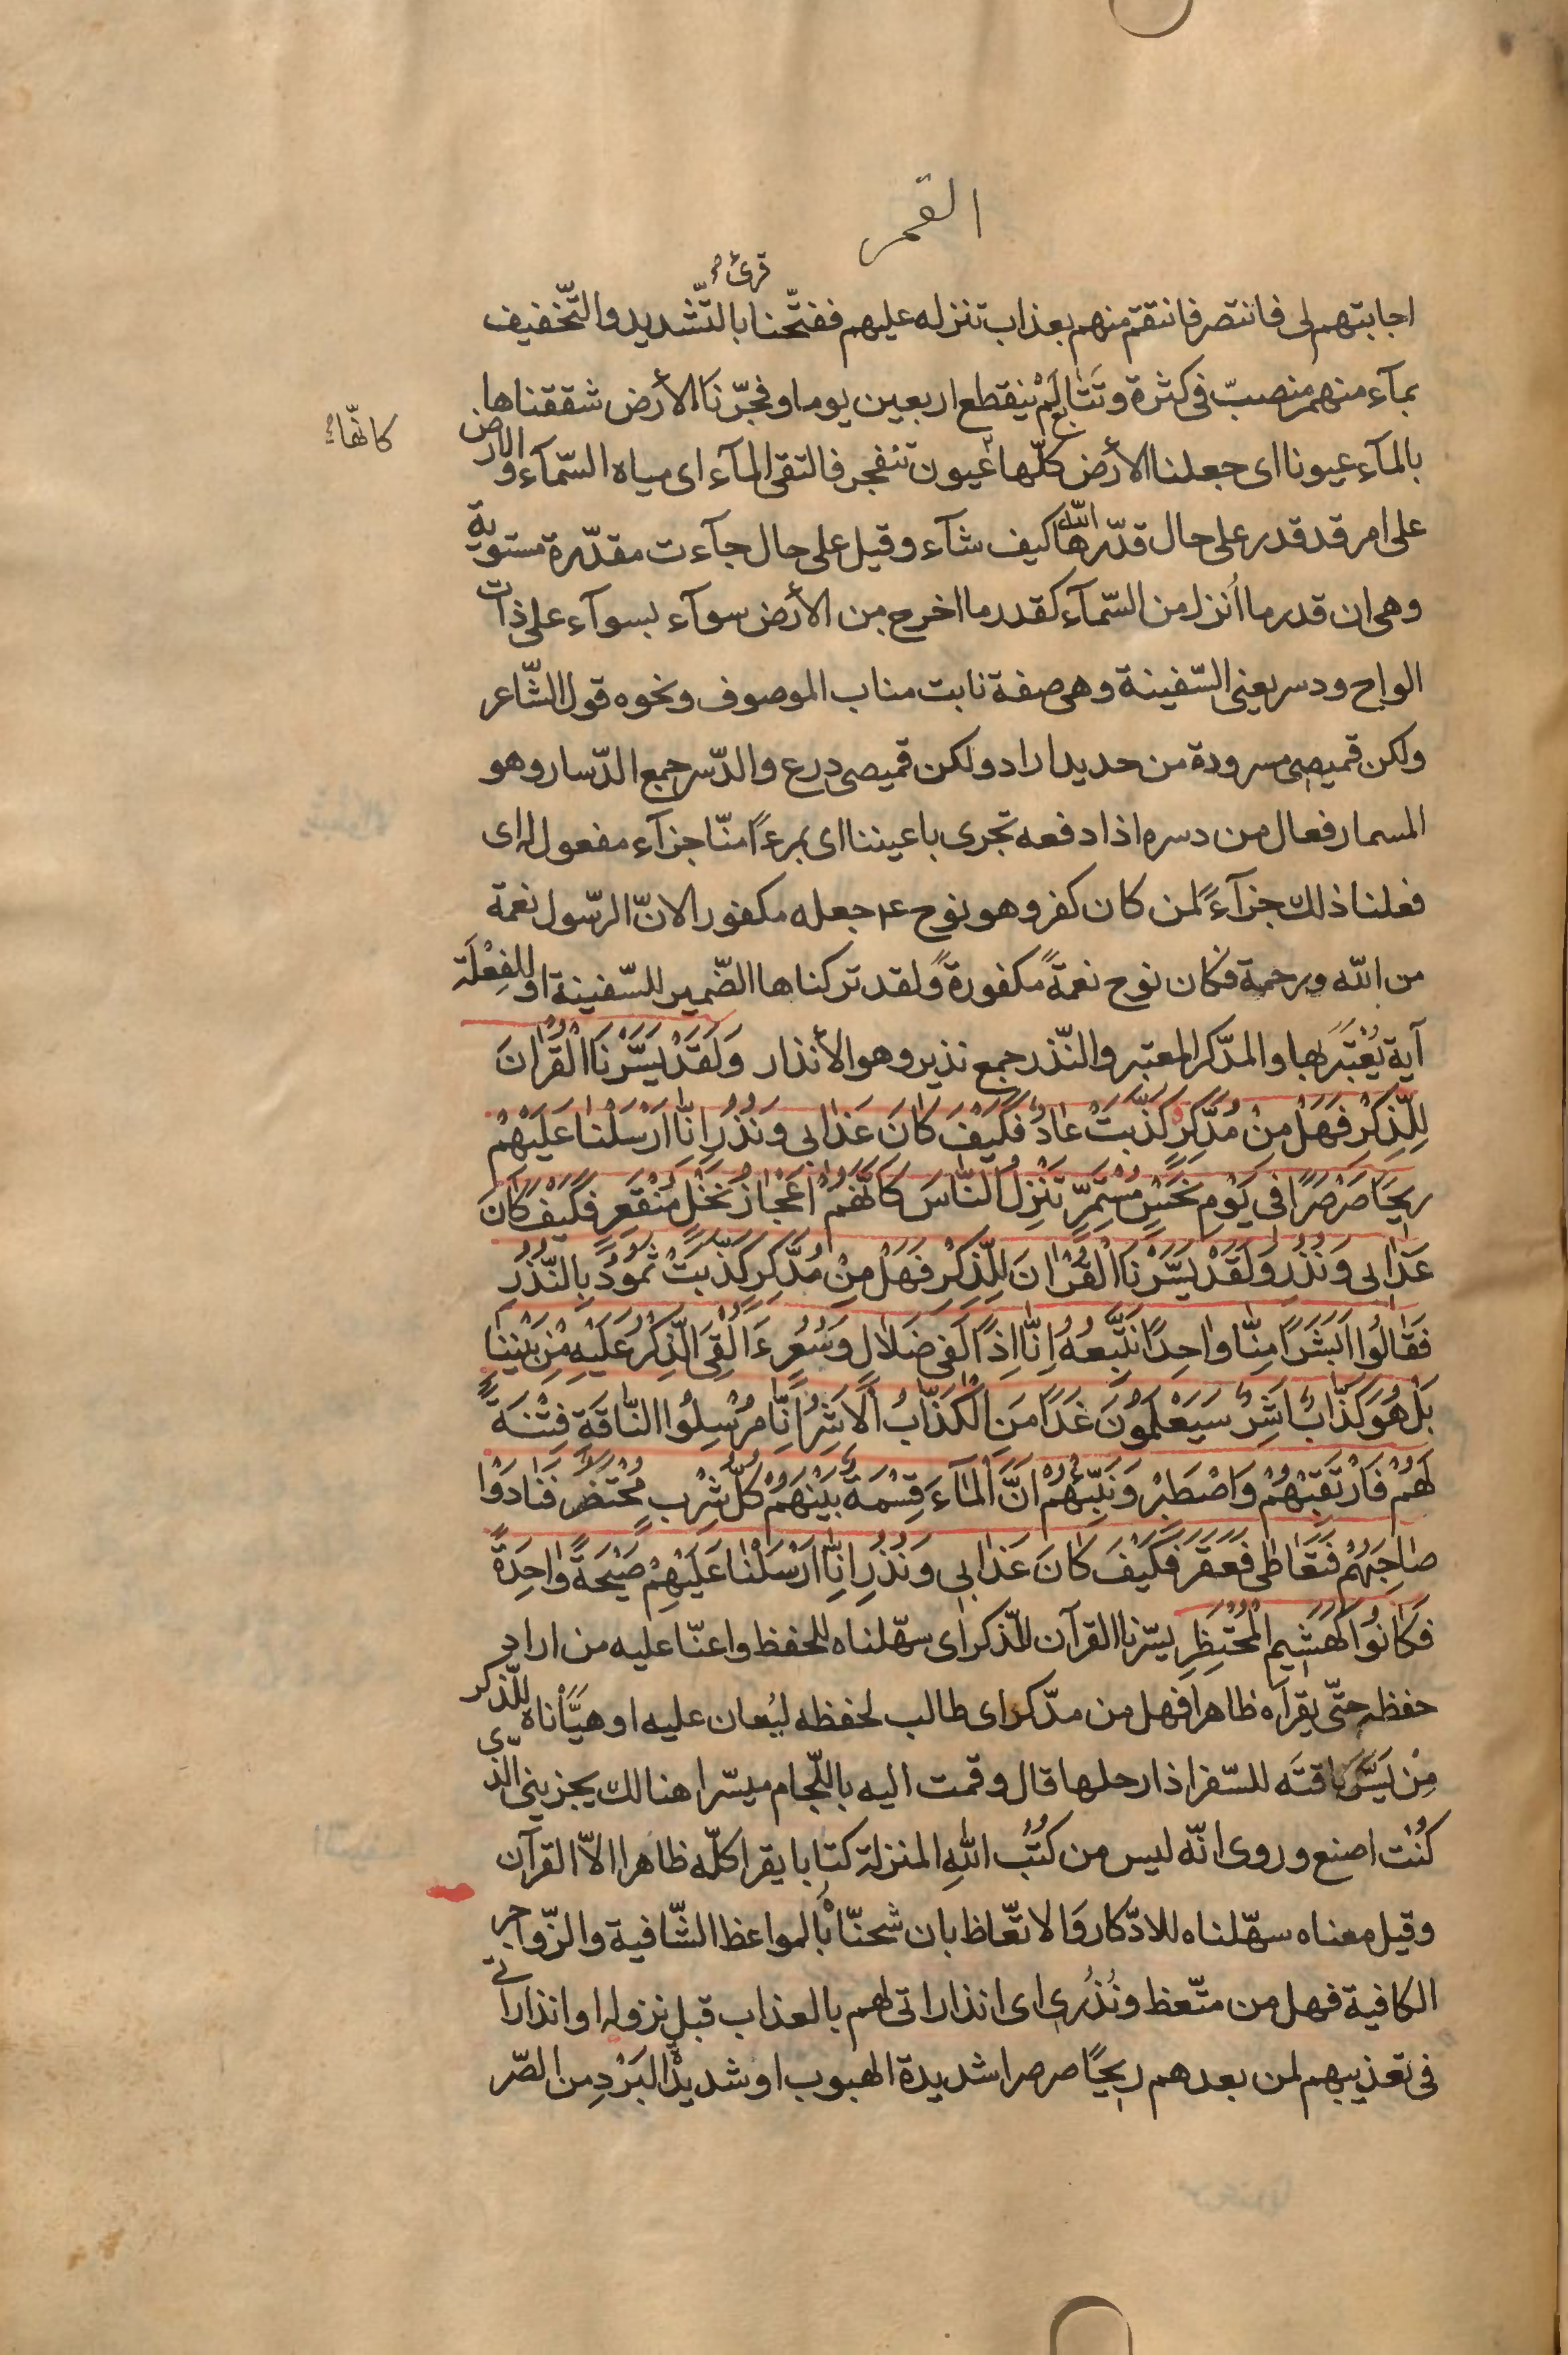 القمر
قرئ
اجابتهم لى فانتصر فانتقم منهم بعذاب تنزله عليهم ففتّحنا بالتّشديد والتّخفيف
بمآء منهمر منصبّ فى كثرة وتَتَابع لَمْ ينقطع اربعين يوما وفجّرنَا الأرض شققناها
كانّها
بالمآء عيونا اى جعلنا الأرض كلّها عيون تنفجر فالتقى المآء اى مياه السّمآء والارض
على امر قد قدر على حال قدّرها الله كيف شآء وقيل على حال جآءت مقدّرة مستوية
وهى ان قدر ما اُنزل من السّمآء كقدر ما اخرج من الأرض سوآء بسوآء على ذات
الواح ودسر يعنى السّفينة وهى صفة نابت مناب الموصوف ونحوه قول الشّاعر
ولكن قميصى مسرودة من حديد اراد ولكن قميصى درع والدّسر جمع الدّسار وهو
المسمار فعال من دسره اذا دفعه تجرى باعيننا اى بمرءًا منّا جزآء مفعول له اى
فعلنا ذلك جزآءً لمن كان كفر وهو نوح ع م جعله مكفورا لانّ الرّسول نعمة
من الله ورحمة فكان نوح نعمةً مكفورةً ولقد تركناها الضّمير للسّفينة او للفِعْلَة
آية يُعْتَبَر بها والمدّكر المعتبر والنّذر جمع نذير وهو الأنذار وَلَقَدْ يَسَّرْنَا الْقُرْانَ
لِلذِّكْرِ فَهَلْ مِنْ مُدَّكِرٍ كَذَّبَتْ عَادٌ فَكَيْفَ كَانَ عَذَابى وَنُذُرِ اِنَّا اَرْسَلْنَا عَلَيْهِمْ
رِيحًا صَرْصَرًا فى يَوْمِ نَحْسٍ مُسْتَمِرٍّ تَنْزِلُ النَّاسَ كَاَنَّهُمْ اَعْجَازُ نَخْلٍ مُنْقَعِرٍ فَكَيْفَ كَانَ
عَذَابى وَنُذُرِ وَلَقَدْ يَسَّرْنَا الْقُرْانَ لِلذِّكْرِ فَهَلْ مِنْ مُدَّكِرٍ كَذَّبَتْ ثَمُودُ بِالنُّذُرِ
فَقَالُوا اَبَشَرًا مِنَّا وَاحِدًا نَتَّبِعُهُ اِنَّا اِذًا لَفى ضَلَالٍ وَسُعُرٍ ءَاُلْقِىَ الذِّكْرُ عَلَيْهِ مِنْ بَيْنِنَا
بَلْ هُوَ كَذَّابٌ اَشِرٌ سَيَعْلَمُونَ غَدًا مَنِ الْكَذَّابُ الْاَشِرُ اِنَّا مُرْسِلُوا النَّاقَةِ فِتْنَةً
لَهُمْ فَارْتَقِبْهُمْ وَاصْطَبِرْ وَنَبِّئْهُمْ اَنَّ الْمَآءَ قِسْمَةٌ بَيْنَهُمْ كُلُّ شِرْبٍ مُحْتَضَرٌ فَنَادَوْا
صَاحِبَهُمْ فَتَعَاطَى فَعَقَرَ فَكَيْفَ كَانَ عَذَابى وَنُذُرِ اِنَّا اَرْسَلْنَا عَلَيْهِمْ صَيْحَةً وَاحِدَةً
فَكَانُوا كَهَشِيمِ الْمُحْتَظِرِ يسّرنا القرآن للذّكر اى سهّلناه للحفظ واعنّا عليه من اراد
حفظه حتّى يقرأه ظاهرا فهل من مدّكر اى طالب لحفظه ليُعان عليه او هيّأناه للذّكر
مِنْ يَسَّرَ ناقتَه للسّفر اذا رحلها قال وقمت اليه باللّجام ميسّرا هنالك يجزينى الّذى
كُنْت اصنع وروى انّه ليس من كُتُب اللهِ المنزلة كتابا يقرا كلّه ظاهرا الاّ القرآن
وقيل معناه سهّلناه للادّكار وَالاتّعاظ بان شحنّاه بالمواعظ الشّافية والزّواجر
الكافية فهل من متّعظ ونُذُرِى اى انذاراتى لهم بالعذاب قبل نزوله او انذاراتى
فى تعذيبهم لمن بعدهم ريحًا صرصرا شديدة الهبوب او شديدة البَرْدِ من الصّر